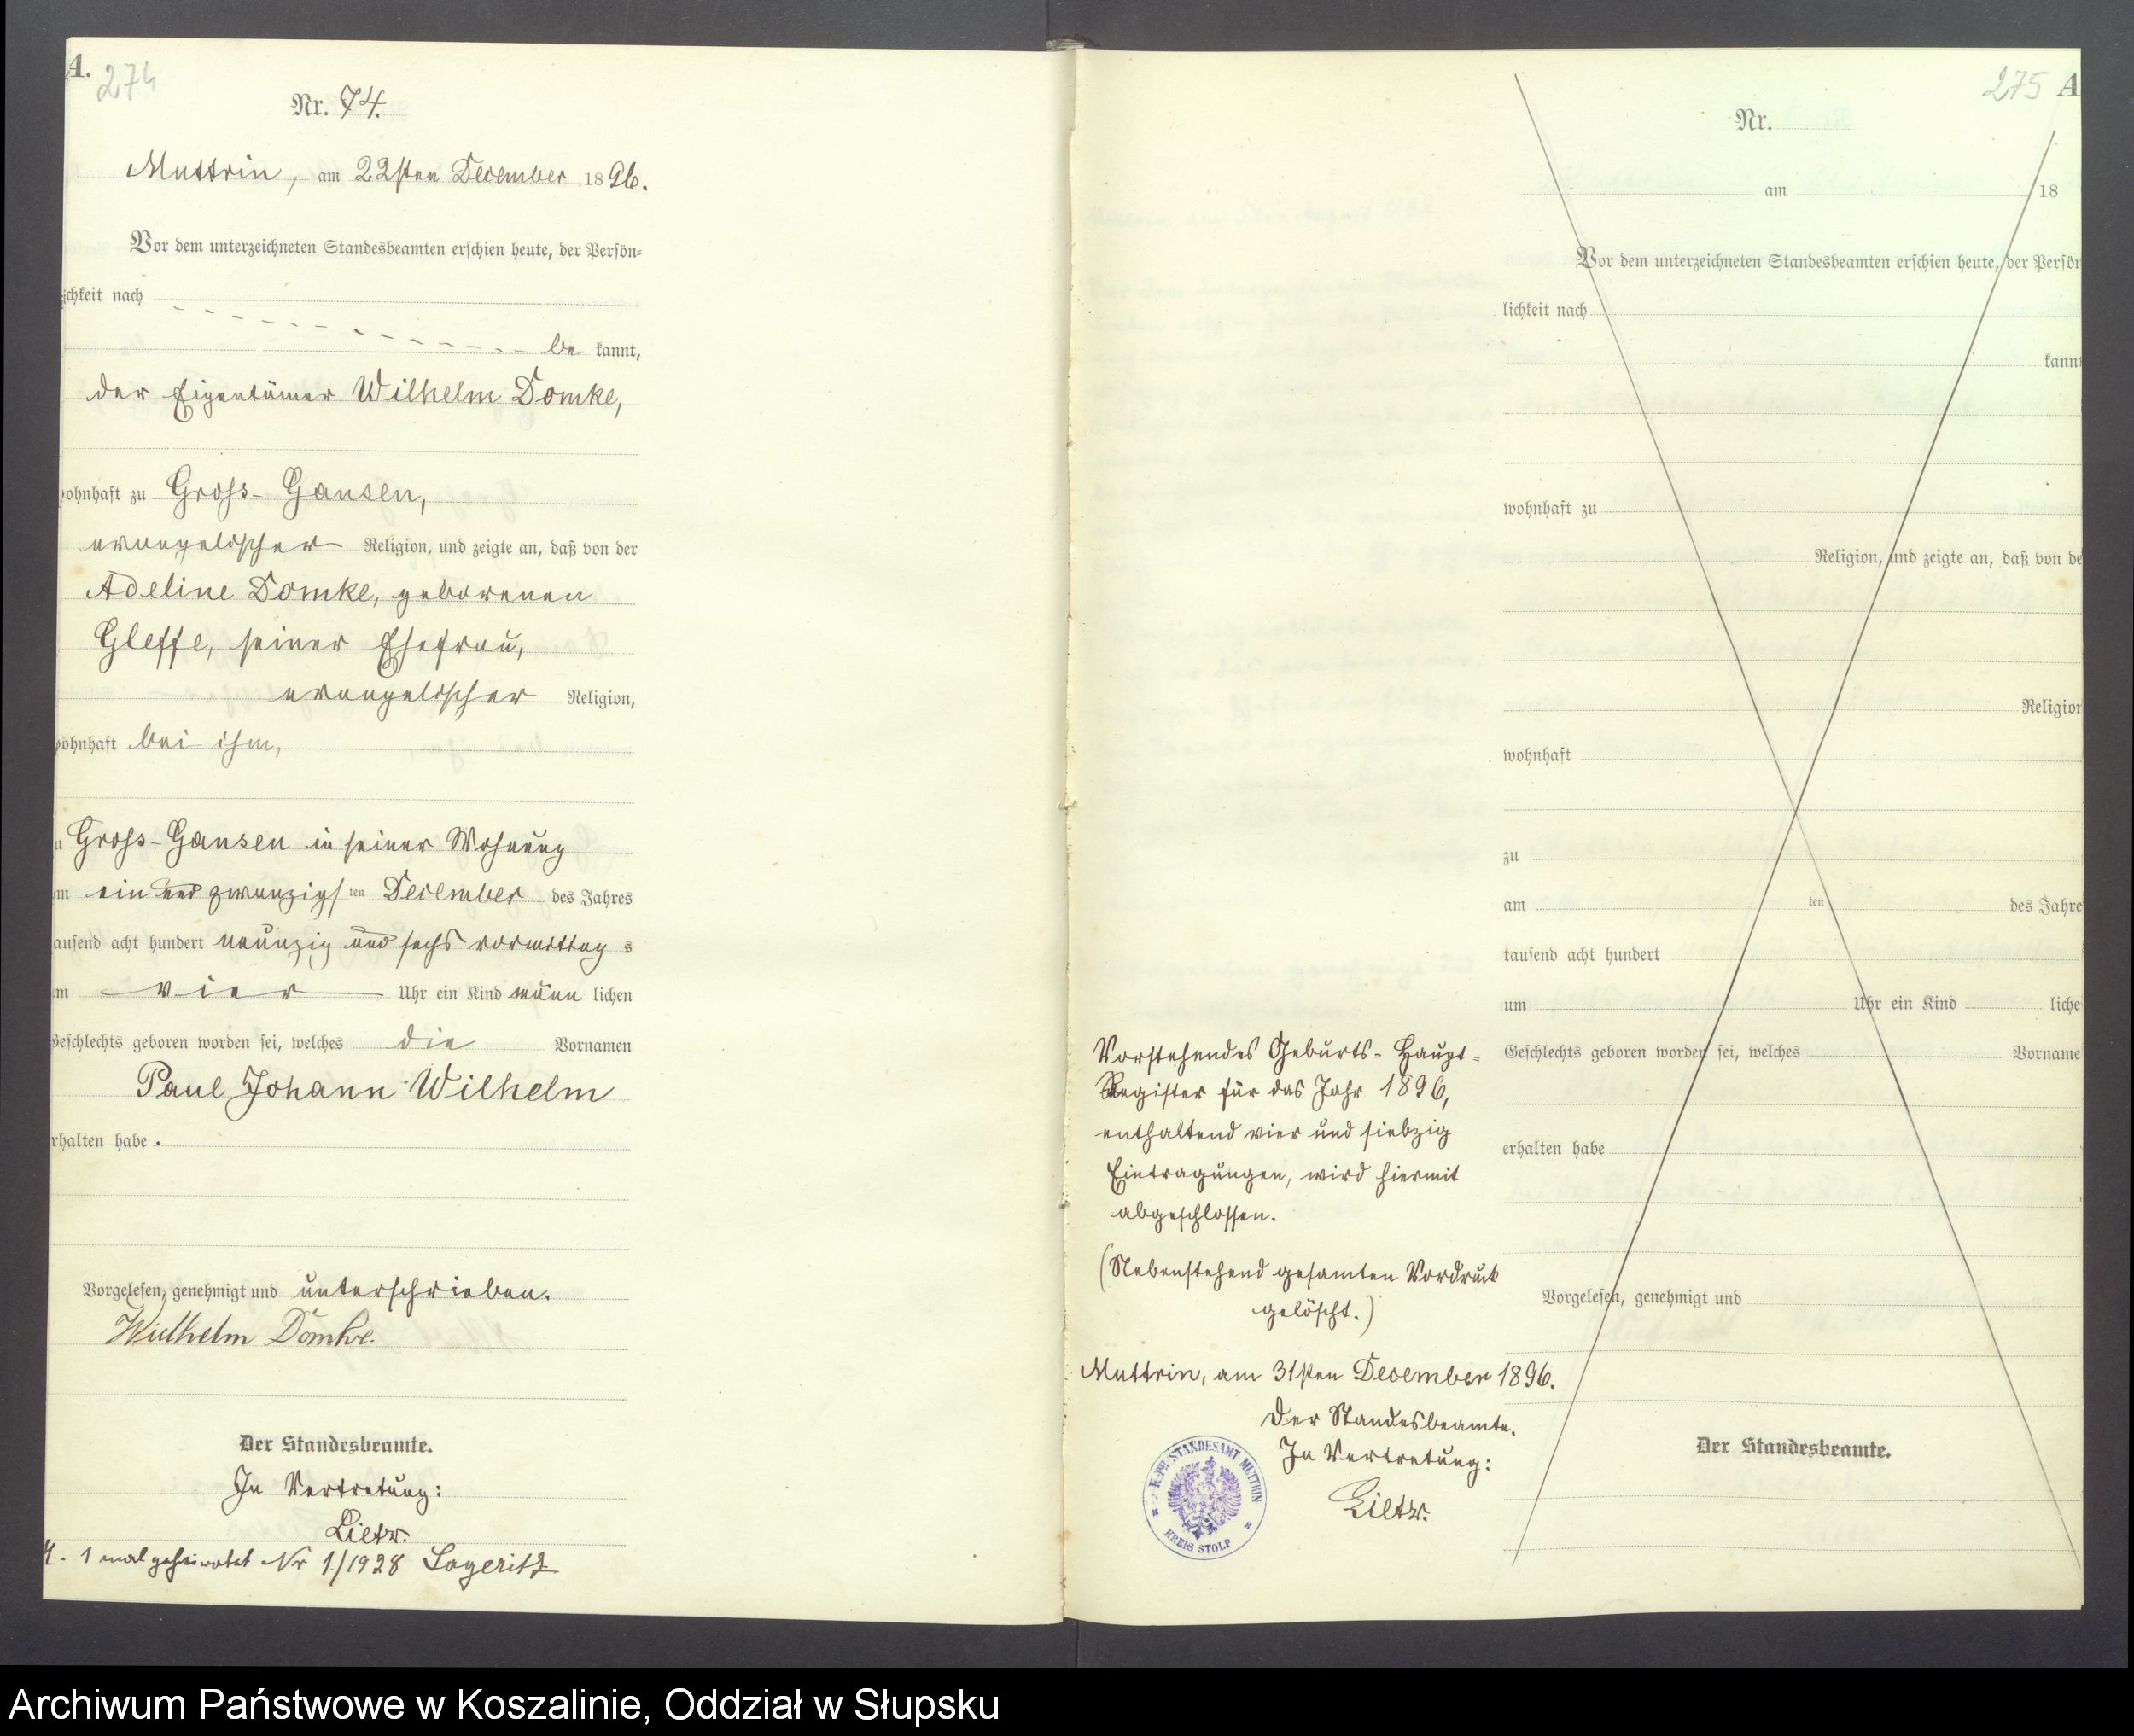 A.
274
Nr. 74.
Muttrin, am 22sten December 1896.
Vor dem unterzeichneten Standesbeamten erschien heute, der Persön-
ichkeit nach
be kannt,
der Eigentümer Wilhelm Domke,
wohnhaft zu Gross-Gansen,
evangelischer Religion, und zeigte an, daß von der
Adeline Domke, geborenen
Gleffe, seiner Ehefrau,
evangelischer Religion,
wohnhaft bei ihm,
zu Gross-Gansen in seiner Wohnung
am ein und zwanzigsten December des Jahres
tausend acht hundert neunzig und sechs vormittags
um vier Uhr ein Kind männlichen
Geschlechts geboren worden sei, welches die Vornamen
Paul Johann Wilhelm
erhalten habe.
Vorgelesen, genehmigt und unterschrieben.
Wilhelm Domke.
Der Standesbeamte.
In Vertretung:
Lietz.
1 mal geheiratet Nr 1/1928 Lageritz
Vorstehendes Geburts-Haupt-
Register für das Jahr 1896,
enthaltend vier und siebzig
Eintragungen, wird hiermit
abgeschlossen.
(Nebenstehend gesamten Vordruck
gelöscht.)
Muttrin, am 31sten December 1896.
Der Standesbeamte.
In Vertretung:
Lietz.
K. PR. STANDESAMT MUTTRIN
KREIS STOLP
275 A
Nr.
am 18
Vor dem unterzeichneten Standesbeamten erschien heute, der Persön
lichkeit nach
kannt
wohnhaft zu
Religion, und zeigte an, daß von de
Religion
wohnhaft
zu
am ten des Jahre
tausend acht hundert
um Uhr ein Kind liche
Geschlechts geboren worden sei, welches Vorname
erhalten habe
Vorgelesen, genehmigt und
Der Standesbeamte.
Archiwum Państwowe w Koszalinie, Oddział w Słupsku